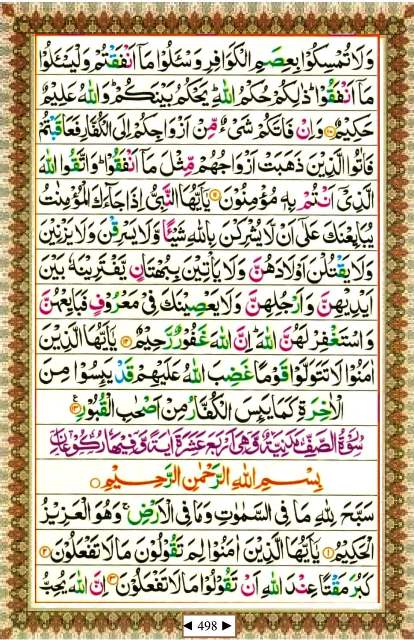 وَلَا تُمْسِكُوْا بِعِصَمِ الْكَوَافِرِ وَسْـَٔلُوْا مَآ اَنْفَقْتُمْ وَلْيَسْـَٔلُوْا
مَآ اَنْفَقُوْا ؕ ذٰلِكُمْ حُكْمُ اللّٰهِ ؕ يَحْكُمُ بَيْنَكُمْ ؕ وَاللّٰهُ عَلِيْمٌ
حَكِيْمٌ ﴿۱۰﴾ وَاِنْ فَاتَكُمْ شَىْءٌ مِّنْ اَزْوَاجِكُمْ اِلَى الْكُفَّارِ فَعَاقَبْتُمْ
فَاٰتُوا الَّذِيْنَ ذَهَبَتْ اَزْوَاجُهُمْ مِّثْلَ مَآ اَنْفَقُوْا ؕ وَاتَّقُوا اللّٰهَ
الَّذِىْٓ اَنْتُمْ بِهٖ مُؤْمِنُوْنَ ﴿۱۱﴾ يٰٓاَيُّهَا النَّبِىُّ اِذَا جَآءَكَ الْمُؤْمِنٰتُ
يُبَايِعْنَكَ عَلٰٓى اَنْ لَّا يُشْرِكْنَ بِاللّٰهِ شَيْـًٔا وَّلَا يَسْرِقْنَ وَلَا يَزْنِيْنَ
وَلَا يَقْتُلْنَ اَوْلَادَهُنَّ وَلَا يَاْتِيْنَ بِبُهْتَانٍ يَّفْتَرِيْنَهٗ بَيْنَ
اَيْدِيْهِنَّ وَاَرْجُلِهِنَّ وَلَا يَعْصِيْنَكَ فِىْ مَعْرُوْفٍ فَبَايِعْهُنَّ
وَاسْتَغْفِرْ لَهُنَّ اللّٰهَ ؕ اِنَّ اللّٰهَ غَفُوْرٌ رَّحِيْمٌ ﴿۱۲﴾ يٰٓاَيُّهَا الَّذِيْنَ
اٰمَنُوْا لَا تَتَوَلَّوْا قَوْمًا غَضِبَ اللّٰهُ عَلَيْهِمْ قَدْ يَئِسُوْا مِنَ
الْاٰخِرَةِ كَمَا يَئِسَ الْكُفَّارُ مِنْ اَصْحٰبِ الْقُبُوْرِ ﴿۱۳﴾
سُوْرَةُ الصَّفِّ مَدَنِيَّةٌ وَّهِىَ اَرْبَعَ عَشْرَةَ اٰيَةً وَّفِيْهَا رُكُوْعَانِ
بِسْمِ اللّٰهِ الرَّحْمٰنِ الرَّحِيْمِ
سَبَّحَ لِلّٰهِ مَا فِى السَّمٰوٰتِ وَمَا فِى الْاَرْضِ ۚ وَهُوَ الْعَزِيْزُ
الْحَكِيْمُ ﴿۱﴾ يٰٓاَيُّهَا الَّذِيْنَ اٰمَنُوْا لِمَ تَقُوْلُوْنَ مَا لَا تَفْعَلُوْنَ ﴿۲﴾
كَبُرَ مَقْتًا عِنْدَ اللّٰهِ اَنْ تَقُوْلُوْا مَا لَا تَفْعَلُوْنَ ﴿۳﴾ اِنَّ اللّٰهَ يُحِبُّ
◄ 498 ►